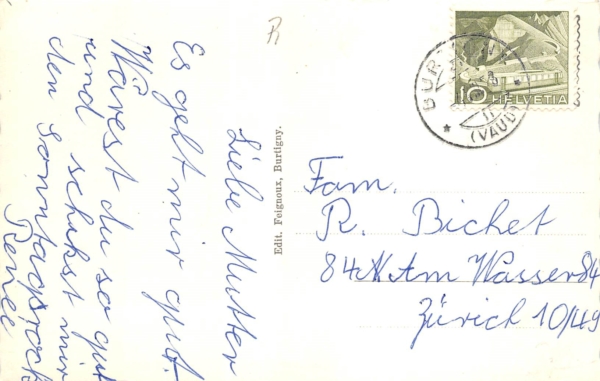 Liebe Mutter
Es geht mir gut.
Wärest du so gut
und schikst mir
den Sonntagsrock
Renée
Edit. Feignoux, Burtigny.
Fam.
R. Bichet
84 Am Wasser 84
Zürich 10/49
10 HELVETIA
BURTIGNY
(VAUD)
R